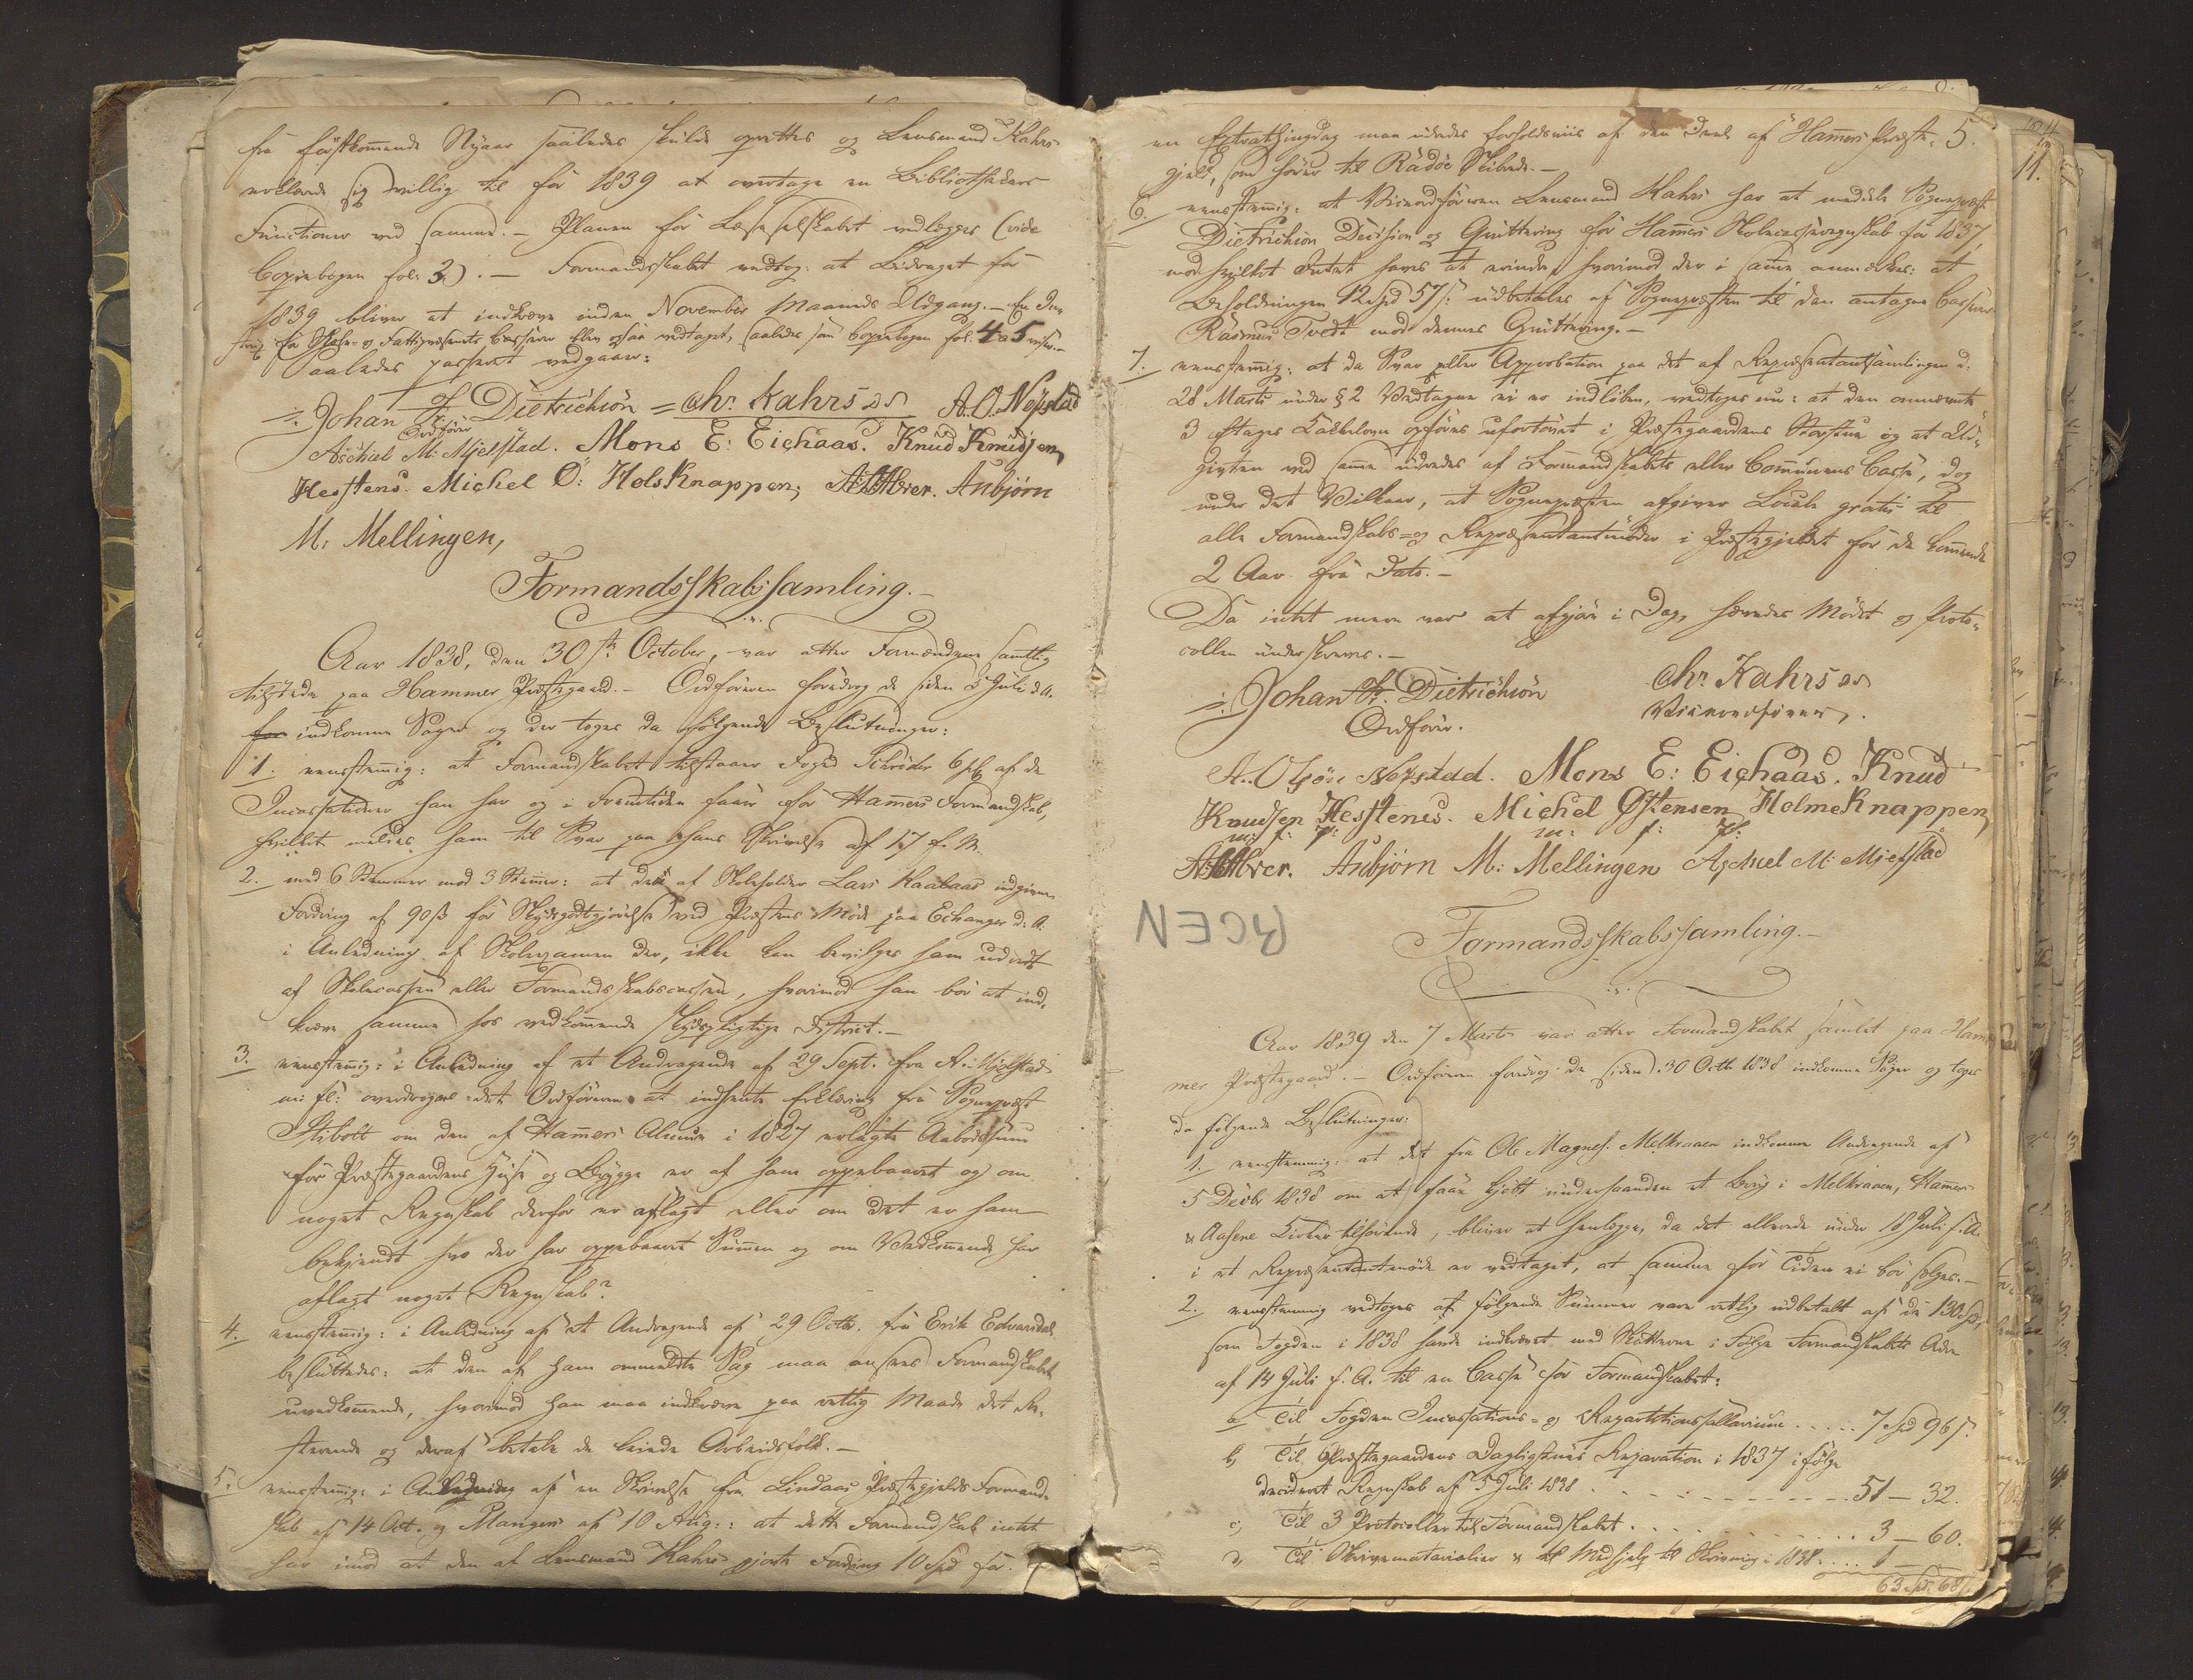 fra förstkommende Nyaar saaledes skulde oprettes og Lensmand Kahrs
erklærede sig villig til for 1839 at overtage en Bibliothekars
Functioner ved samme. — Planen for Læseselskabet vedlægges (vide
Copiebogen fol: 3). — Formandsskabet vedtog: at Bidraget for
1839 bliver at indkræve inden November Maaneds Udgang. — En Instrux
for Skole- og Fattigvæsenets Casserer blev ogsaa vedtaget, saaledes som Copiebogen fol. 4 & 5 viser. —
Saaledes passeret vedgaaer:
Johan Fr. Dietrichson = Chr. Kahrs A. O. Nepstad
Ordförer
Aschiel M. Mjelstad. Mons E: Eichaas. Knud Knudsen
Hesstens. Michel Ö: HolsKnappen, Anbjørn
M. Mellingen,
Formandsskabssamling. —
Aar 1838, den 30te October, var atter Formændene samtlig
tilstede paa Hammer Præstegaard. — Ordföreren foredrog de siden 5 Juli d. A.
indkomne Sager og der toges da følgende Beslutninger:
1. eenstemmig: at Formandskabet tilstaaer Foged Schröder 6 pC af de
Incassationer han har og i Fremtiden faaer for Hammers Formandskab,
hvilket meldes ham til Svar paa hans Skrivelse af 17 f. M.
2. med 6 Stemmer mod 3 Stemmer: at den af Skoleholder Lars Kaalaas indgivne
Fordring af 90 ß for Skydsgodtgjörelse ved Præstens Möde paa Echanger d: A.
i Anledning af Skoleexamen der, ikke kan bevilges ham udredt
af Skolecassen eller Formandsskabscassen, hvorimod han bör at ind-
kræve samme hos vedkommende skydspligtige District. —
3. eenstemmig: i Anledning af et Andragende af 29 Sept. fra A. Mjelstad
m: fl: overdroges det Ordföreren at indhente Erklæring fra Sognepræst
Stibolt om den af Hammers Almue i 1827 erlagte Aabodssum
for Præstegaardens Huse og Brygge er af ham oppebaaret og om
noget Regnskab derfor er aflagt eller om det er ham
bekjendt hvo der har oppebaaret Summen og om Vedkommende har
aflagt noget Regnskab?
4. eenstemmig: i Anledning af et Andragende af 29 Octbr. fra Erik Edvarsdal
besluttedes: at den af ham anmeldte Sag maa ansees Formandskabet
uvedkommende, hvorimod han maa indkræve paa rettlig Maade det Re-
sterende og deraf betale de leiede Arbeidsfolk. —
5. eenstemmig: i Anledning af en Skrivelse fra Lindaas Præstegjelds Formand-
skab af 14 Oct. og Mangers af 10 Aug.: at dette Formandskab intet
har imod at den af Lensmand Kahrs gjorte Fordring 10 Spd for
5.
en Extrathingdag maa udredes forholdsviis af den Deel af Hammers Præste-
gjeld, som hörer til Radöe Skibrede. —
6. eenstemmig: at Viceordföreren Lensmand Kahrs har at meddele Sognepræst
Dietrichson Decision og Qvittering for Hammers Skolecasseregnskab for 1837,
mod hvilket Intet haves at erindre, hvorimod der i samme anmærkes: at
Beholdningen 12 Spd 57 ß udbetales af Sognepræsten til den antagne Casserer
Rasmus Tvedt mod dennes Qvittering. —
7. eenstemmig: at da Svar eller Approbation paa det af Repræsentantsamlingen d.
28 Marts under § 2 Vedtagne ei er indløben, vedtoges nu: at den omnævnte
3 Etages Kakkelovn opföres ufortövet i Præstegaardens Storstue og at Ud-
giften ved samme udredes af Formandskabets eller Communens Casse, dog
under det Vilkaar, at Sognepræsten afgiver Locale gratis til
alle Formandskabs- og Repræsentantmöder i Præstegjeldet for de kommende
2 Aar fra Dato. —
Da intet mere var at afgjöre i Dag, hævedes Mödet og Proto-
collen underskreves. —
Johan Fr. Dietrichson Chr. Kahrs
Ordförer. Viceordförer.
A. Olsön Nepstad. Mons E: Eichaas. Knud
Knudsen Hesstenes. Michel Østensen HolmeKnappen
m: f: P: m: f: P:
Anbjörn M: Mellingen Aschiel M: Mjelstad
BGEN
Formandsskabssamling. —
Aar 1839 den 7 Marts var atter Formandskabet samlet paa Ham-
mer Præstegaard. — Ordföreren foredrog de siden 30 Octb 1838 indkomne Sager og toges
da følgende Beslutninger:
1. eenstemmig: at det fra Ole Magnes. Melkraaen indkomne Andragende af
5 Decbr 1838 om at faae kjøbt underhaanden et Brug i Melkraaen, Hamers
& Aasene Kirker tilhörende, bliver at henlægge, da det allerede under 18 Juli f. A.
i et Repræsentantmöde er vedtaget, at samme for Tiden ei bör sælges. —
2. eenstemmig vedtoges at følgende Summer vare rettlig udbetalt af de 130 Spd,
som Fogden i 1838 havde indkrævet med Skatterne i Følge Formandskabets
af 14 Juli f. A. til en Casse for Formandskabet:
a, Til Fogden Incassations- og Repartitionssallarium . . . . 7 Spd 96 ß.
b, Til Præstegaardens Dagligstues Reparation i 1837 ifölge
decideret Regnskab af 5 Juli 1838 . . . . . . . . 51 — 32.
c, Til 3 Protocoller til Formandskabet . . . . . . . . 3 — 60.
d, Til Skrivematerialier & til Medhjelp til Skrivning i 1838 . . . . 1 —
63 Spd 68 ß.